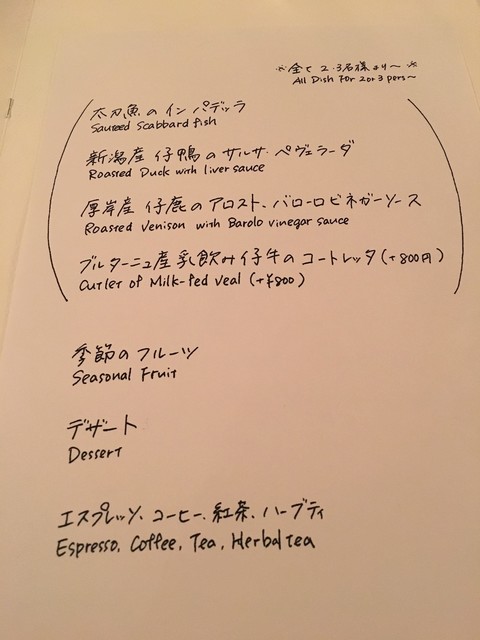 ※ 全て 2・3名様より〜 ※
All Dish For 2 or 3 pers~
太刀魚のインパデッラ
Sauteed Scabbard fish
新潟産 仔鴨のサルサ・ペヴェラーダ
Roasted Duck with liver sauce
厚岸産 仔鹿のアロスト、バローロビネガーソース
Roasted Venison with Barolo vinegar sauce
ブルターニュ産 乳飲み仔牛のコートレッタ (+800円)
Cutlet of Milk-fed veal (+¥800)
季節のフルーツ
Seasonal Fruit
デザート
Dessert
エスプレッソ、コーヒー、紅茶、ハーブティ
Espresso, Coffee, Tea, Herbal tea